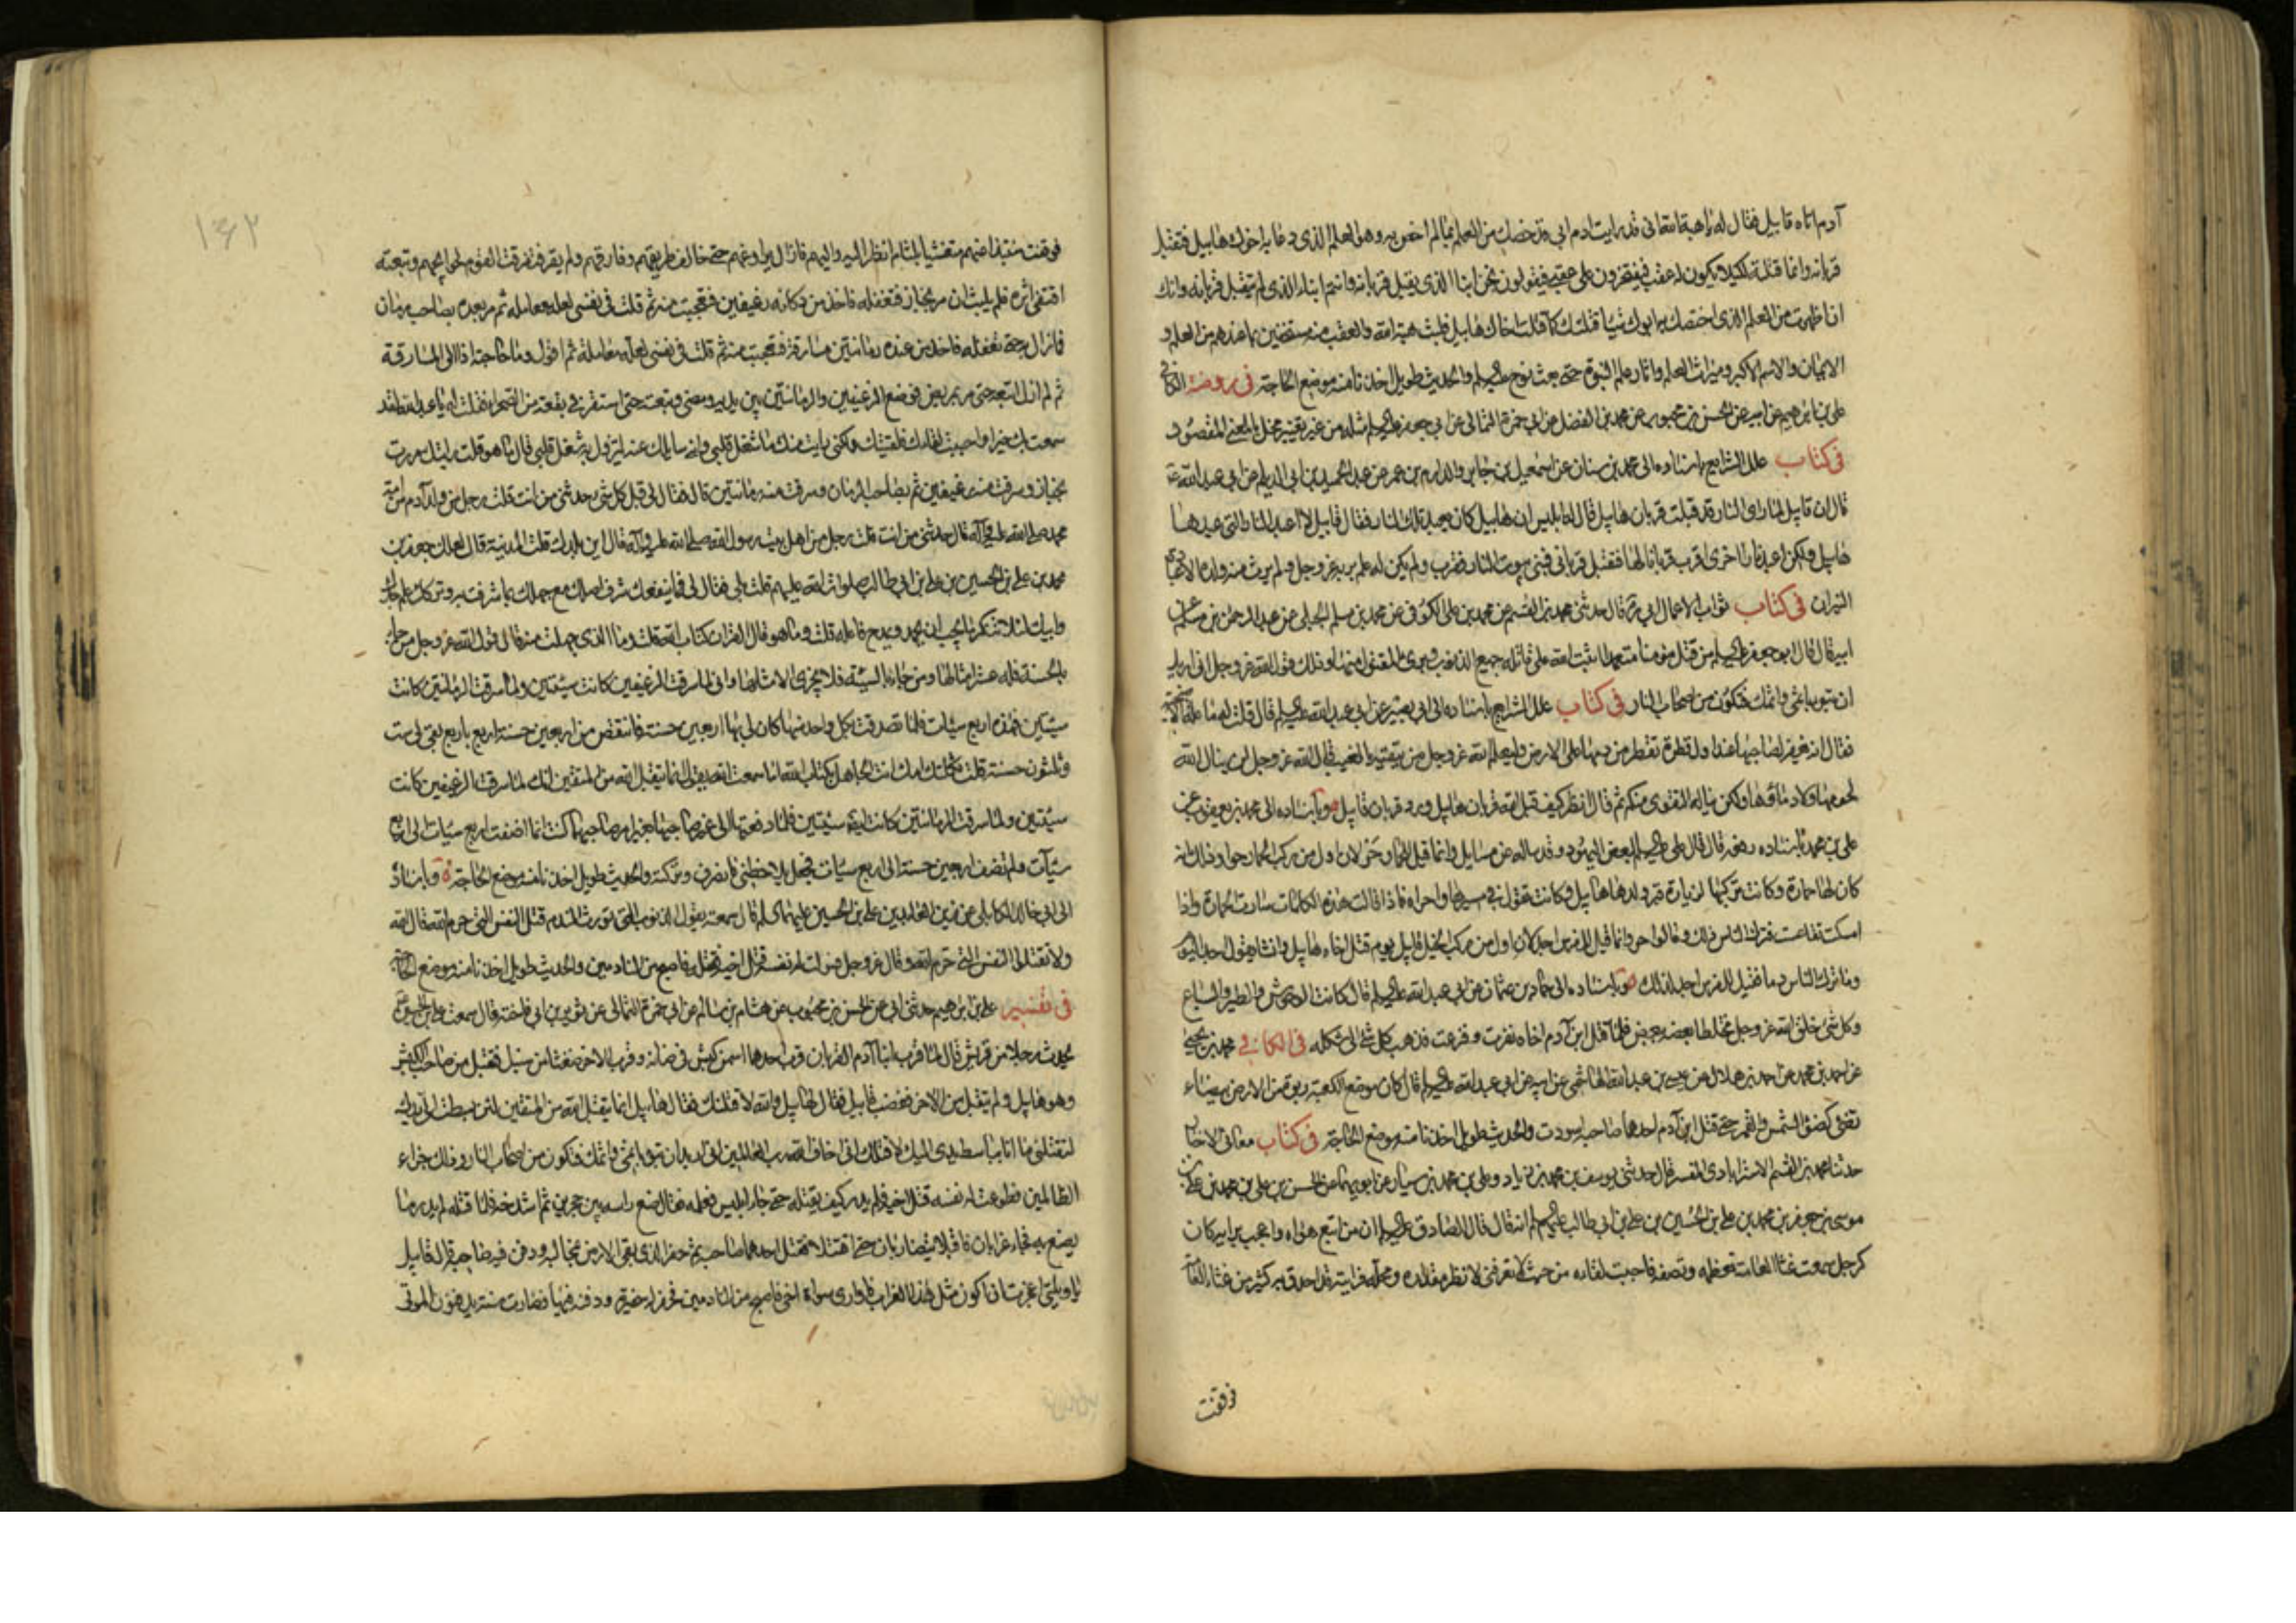 آدم اتاه قابيل فقال له يا هبة الله انى قد رايت ادم ابى قد خصك من العلم بما لم اخص به وهو العلم الذى دعا به اخوك هابيل فتقبل
قربانه وانما قتلته لكيلا يكون له عقب فيفتخرون على عقبى فيقولون نحن ابناء الذى يقبل قربانه وانتم ابناء الذى لم يتقبل قربانه وانك
ان اظهرت من العلم الذى اختصك به ابوك شيئا قتلتك كما قتلت اخاك هابيل فلبث هبة الله والعقب منه مستخفين بما عندهم من العلم و
الايمان والاسم الاكبر وميراث العلم واثار علم النبوة حتى بعث نوح عليه السلم والحديث طويل اخذنا منه موضع الحاجة فى روضة الكافى
على بن ابرهيم عن ابيه عن الحسن بن محبوب عن محمد بن الفضل عن ابى حمزة الثمالى عن ابى جعفر عليه السلم مثله من غير تغيير مخل بالمعنى المقصود
فى كتاب علل الشرايع باسناده الى محمد بن سنان عن اسمعيل بن جابر والدارم بن عمر عن عبد الحميد بن ابى الديلم عن ابى عبد الله ع
قال ان قابيل لما راى النار قد قبلت قربان هابيل قال له ابليس ان هابيل كان يعبد تلك النار فقال قابيل لا اعبد النار التى عبدها
هابيل ولكن اعبد نارا اخرى اقرب قربانا لها فتقبل قربانى فبنى بيوت النار فقرب ولم يكن له علم بربه عز وجل ولم يرث منه ولده الا عبادة
النيران فى كتاب ثواب الاعمال ابى ره قال حدثنى محمد بن القسم عن محمد بن على الكوفى عن محمد بن سلم الجبلى عن عبد الرحمن بن سلم عن
ابيه قال قال ابو جعفر عليه السلم من قتل مؤمنا متعمدا اثبت الله على قاتله جميع الذنوب وبرئ المقتول منها وذلك قول الله عز وجل انى اريد
ان تبوء باثمى واثمك فتكون من اصحاب النار فى كتاب علل الشرايع باسناده الى ابى بصير عن ابى عبد الله عليه السلم قال قلت له ما علة الاضحية
فقال انه يغفر لصاحبها عند اول قطرة تقطر من دمها على الارض وليعلم الله عز وجل من يتقيه بالغيب قال الله عز وجل لن ينال الله
لحومها ولا دماؤها ولكن يناله التقوى منكم ثم قال انظر كيف قبل الله قربان هابيل ورد قربان قابيل وباسناده الى محمد بن يعقوب عن
على بن محمد باسناده رفعه قال قال على عليه السلم لبعض اليهود وقد ساله عن مسايل وانما قيل للحمار حر لان اول من ركب الحمار حوا وذلك انه
كان لها حمارة وكانت تركبها لزيارة قبر ولدها هابيل وكانت تقول فى مسيرها واحراه فاذا قالت هذه الكلمات سارت الحمارة واذا
امسكت تقاعست فترك الناس ذلك وقالوا حر وانما قيل للفرس اجد لان اول من ركب الخيل قابيل يوم قتل اخاه هابيل وانشا يقول اجد اليوم
وما ترك الناس دما فقيل للفرس اجد لذلك وباسناده الى حماد بن عثمان عن ابى عبد الله عليه السلم قال كانت الوحوش والطير والسباع
وكل شئ خلق الله عز وجل مختلطا بعضه ببعض فلما قتل ابن آدم اخاه نفرت وفزعت فذهب كل شئ الى شكله فى الكافى محمد بن يحيى
عن احمد بن محمد عن احمد بن هلال عن عيسى بن عبد الله الهاشمى عن ابيه عن ابى عبد الله عليه السلم قال كان موضع الكعبة ربوة من الارض بيضاء
تضئ كضوء الشمس والقمر حتى قتل ابن آدم احدهما صاحبه اسودت والحديث طويل اخذنا منه موضع الحاجة فى كتاب معانى الاخبار
حدثنا محمد بن القسم الاسترابادى المفسر قال حدثنى يوسف بن محمد بن زياد وعلى بن محمد بن سيار عن ابويهما عن الحسن بن على بن محمد بن على بن
موسى بن جعفر بن محمد بن على بن الحسين بن على بن ابى طالب عليهم السلم انه قال قال الصادق عليه السلم ان من اتبع هواه واعجب برايه كان
كرجل سمعت غثاء العامة تعظمه وتصفه فاحببت لقاءه من حيث لا يعرفنى لانظر مقداره ومحله فرايته قد احدق به كثير من غثاء العامة
فوقفت
١٤٢
فوقفت منتبذا عنهم متغشيا بلثام انظر اليه واليهم فما زال يراوغهم حتى خالف طريقهم وفارقهم ولم يقر فتفرقت القوم لحوايجهم وتبعته
اقتفى اثره فلم يلبث ان مر بخباز فتغفله فاخذ من دكانه رغيفين فتعجبت منه ثم قلت فى نفسى لعله معامله ثم مر بعده بصاحب رمان
فما زال به حتى تغفله فاخذ من عنده رمانتين مسارقة فتعجبت منه ثم قلت فى نفسى لعله معامله ثم اقول وما حاجته اذا الى المسارقة
ثم لم ازل اتبعه حتى مر بمريض فوضع الرغيفين والرمانتين بين يديه ومضى وتبعته حتى استقر فى بقعة من الصحراء فقلت له يا عبد الله لقد
سمعت بك خيرا واحببت لقاءك فلقيتك ولكنى رايت منك ما شغل قلبى وانى سايلك عنه ليزول به شغل قلبى قال ما هو قلت رايتك مررت
بخباز وسرقت منه رغيفين ثم بصاحب الرمان وسرقت منه رمانتين قال فقال لى قبل كل شئ حدثنى من انت قلت رجل من ولد آدم من امة
محمد صلى الله عليه وآله قال حدثنى من انت قلت رجل من اهل بيت رسول الله صلى الله عليه وآله قال اين بلدك قلت المدينة قال لعلك جعفر بن
محمد بن على بن الحسين بن على بن ابى طالب صلوات الله عليهم قلت بلى فقال لى فما ينفعك شرف اصلك مع جهلك بما شرفت به وتركك علم جدك
وابيك لئلا تنكر ما يجب ان يحمد ويمدح فاعله قلت وما هو قال القران كتاب الله قلت وما الذى جهلت منه قال قول الله عز وجل من جاء
بالحسنة فله عشر امثالها ومن جاء بالسيئة فلا يجزى الا مثلها وانى لما سرقت الرغيفين كانت سيئتين ولما سرقت الرمانتين كانت
سيئتين فهذه اربع سيئات فلما تصدقت بكل واحد منها كان لى بها اربعين حسنة فانتقض من اربعين حسنة اربع باربع بقى لى ست
وثلثون حسنة قلت ثكلتك امك انت الجاهل بكتاب الله اما سمعت الله يقول انما يتقبل الله من المتقين انك لما سرقت الرغيفين كانت
سيئتين ولما سرقت الرمانتين كانت ايضا سيئتين فلما دفعتها الى غير صاحبها بغير امر صاحبها كنت انما اضفت اربع سيئات الى اربع
سيئات ولم تضف اربعين حسنة الى اربع سيئات فجعل يلاحظنى فانصرفت وتركته والحديث طويل اخذنا منه موضع الحاجة وباسناده
الى ابى خالد الكابلى عن زين العابدين على بن الحسين عليهما السلم قال سمعته يقول الذنوب التى تورث الندم قتل النفس التى حرم الله قال الله
ولا تقتلوا النفس التى حرم الله وقال عز وجل فطوعت له نفسه قتل اخيه فقتله فاصبح من النادمين والحديث طويل اخذنا منه موضع الحاجة
فى تفسير على بن ابرهيم حدثنى ابى عن الحسن بن محبوب عن هشام بن سالم عن ابى حمزة الثمالى عن ثوير بن ابى فاختة قال سمعت على بن الحسين ع
يحدث رجلا من قريش قال لما قرب ابنا آدم القربان قرب احدهما اسمن كبش فى ضانه وقرب الاخر ضغثا من سنبل فتقبل من صاحب الكبش
وهو هابيل ولم يتقبل من الاخر فغضب قابيل فقال لهابيل والله لاقتلنك فقال هابيل انما يتقبل الله من المتقين لئن بسطت الى يدك
لتقتلنى ما انا بباسط يدى اليك لاقتلك انى اخاف الله رب العالمين انى اريد ان تبوء باثمى واثمك فتكون من اصحاب النار وذلك جزاء
الظالمين فطوعت له نفسه قتل اخيه فلم يدر كيف يقتله حتى جاء ابليس فعلمه فقال ضع راسه بين حجرين ثم اشدخه فلما قتله لم يدر ما
يصنع به فجاء غرابان فاقبلا يتضاربان حتى اقتتلا فقتل احدهما صاحبه ثم حفر الذى بقى الارض بمخالبه ودفن فيه صاحبه قال قابيل
يا ويلتى اعجزت ان اكون مثل هذا الغراب فاوارى سواة اخى فاصبح من النادمين فحفر له حفيرة ودفنه فيها فصارت سنة يدفنون الموتى